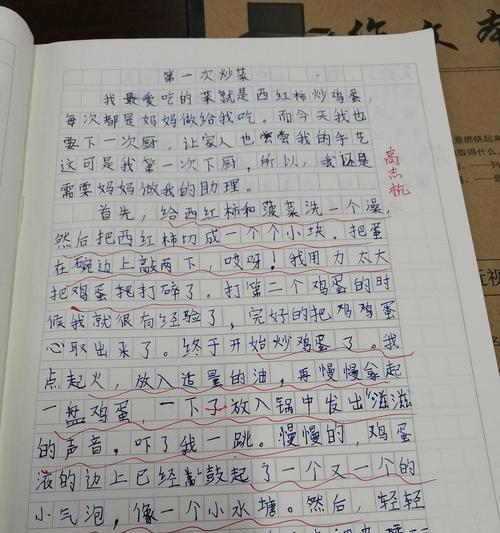 作文本
意燃烧起
取得什么。
列
近视
高志杭
第一次炒菜
我最爱吃的菜就是西红柿炒鸡蛋,
每次都是妈妈做给我吃。而今天我也
要下一次厨,让家人也尝尝我的手艺
这可是我第一次下厨,所以,我还是
需要妈妈做我的助理。
首先,给西红柿和菠菜洗一个澡,
然后把西红柿切成一个个小块。把蛋
在碗边上敲两下,哎呀!我用力太大
把鸡蛋把打碎了。打第二个鸡蛋的时
候我就很有经验了,完好的把鸡鸡蛋
心取出来了。终于开始炒鸡蛋了。我
点起火,放入适量的油,再慢慢拿起
一盘鸡蛋,一下子放入锅中发出“滋滋
的声音,吓了我一跳。慢慢的,鸡蛋
液的边上已经鼓起了一个又一个的
小气泡,像一个小水塘。然后,轻轻